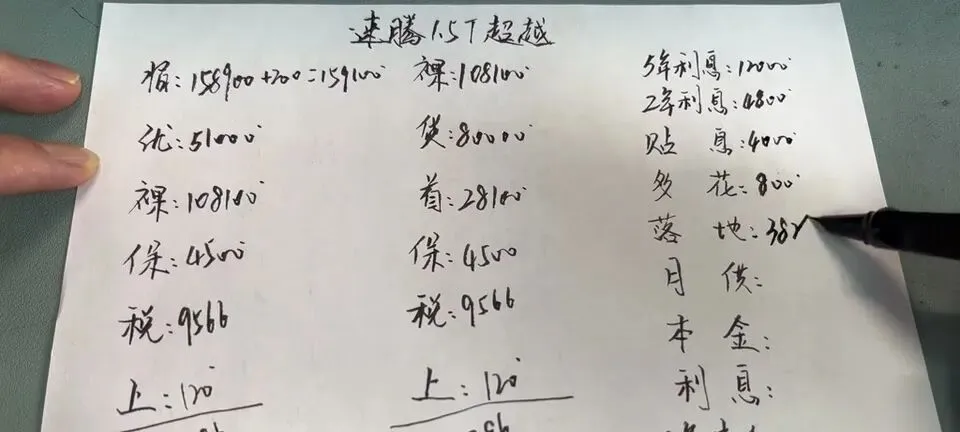 速腾1.5T超越
指：158900+200=159100
优：51000
裸：108100
保：4500
税：9566
上：120
裸：108100
贷：80000
首：28100
保：4500
税：9566
上：120
5年利息：12000
2年利息：4800
贴息：4000
多花：800
落地：382
月供：
本金：
利息：